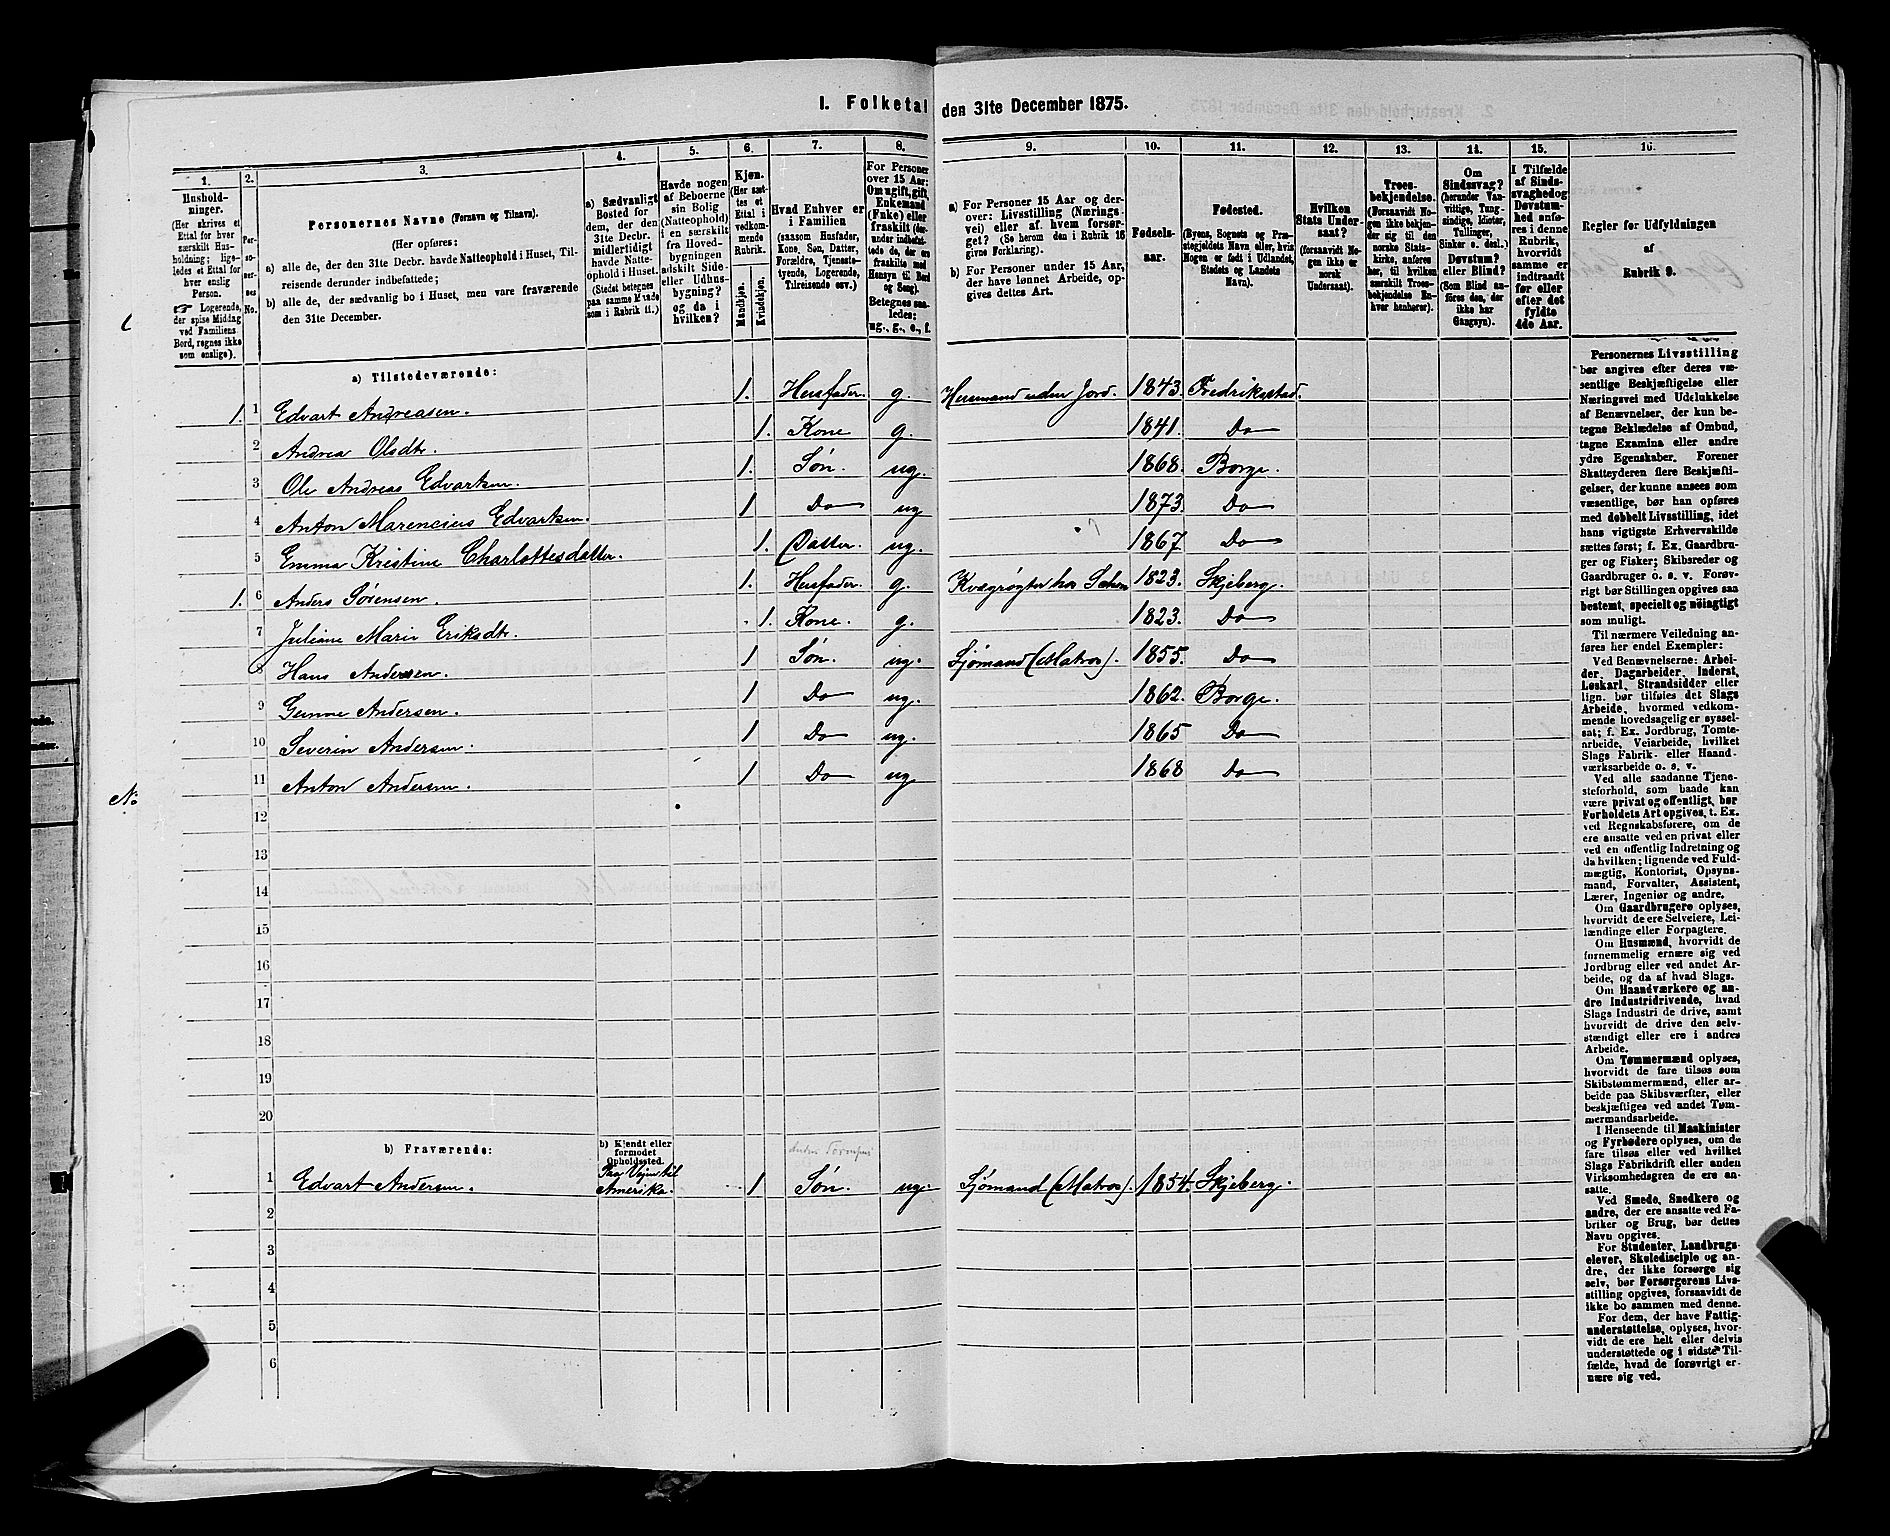 I. Folketal den 31te December 1875.
1. 2. 3. 4. 5. 6. 7. 8. 9. 10. 11. 12. 13. 14. 15. 16.
Hushold-
ninger.
(Her skrives et
Ettal for hver
særskilt Hus-
holdning; lige-
ledes et Ettal for
hver enslig
Person.
☞ Logerende,
der spise Middag
ved Familiens
Bord, regnes ikke
som enslige).
Per-
so-
ner-
nes
No.
Personernes Navne (Fornavn og Tilnavn).
(Her opføres:
a) alle de, der den 31te Decbr. havde Natteophold i Huset, Til-
reisende derunder indbefattede;
b) alle de, der sædvanlig bo i Huset, men vare fraværende
den 31te December.
a) Sædvanligt
Bosted for
dem, der den
31te Decbr.
midlertidigt
havde Natte-
ophold i Huset.
(Stedet betegnes
paa samme Maade
som i Rubrik 11.)
Havde nogen
af Beboerne
sin Bolig
(Natteophold)
i en særskilt
fra Hoved-
bygningen
adskilt Side-
eller Udhus-
bygning?
og da i
hvilken?
Kjøn.
(Her sæt-
tes et
Ettal i
vedkom-
mende
Rubrik.
Mandkjøn.
Kvindekjøn.
Hvad Enhver er
i Familien
(saasom Husfader,
Kone, Søn, Datter,
Forældre, Tjeneste-
tyende, Logerende,
Tilreisende osv.)
For Personer
over 15 Aar:
Om ugift, gift,
Enkemand
(Enke) eller
fraskilt (der-
under indbefat-
tede de, der ere
fraskilte med
Hensyn til Bord
og Seng).
Betegnes saa-
ledes:
ug., g., e., f.
a) For Personer 15 Aar og der-
over: Livsstilling (Nærings-
vei) eller af hvem forsør-
get? (Se herom den i Rubrik 16
givne Forklaring).
b) For Personer under 15 Aar,
der have lønnet Arbeide, op-
gives dettes Art.
Fødsels-
aar.
Fødested.
(Byens, Sognets og Præ-
stegjeldets Navn eller, hvis
Nogen er født i Udlandet,
Stedets og Landets
Navn).
Hvilken
Stats Under-
saat?
(forsaavidt No-
gen ikke er
norsk
Undersaat).
Troes-
bekjendelse.
(Forsaavidt No-
gen ikke bekjen-
der sig til den
norske Stats-
kirke, anføres
her, til hvilken
særskilt Troes-
bekjendelse En-
hver henhører).
Om
Sindssvag?
(herunder Van-
vittige, Tung-
sindige, Idioter,
Tullinger,
Sinker o. desl.)
Døvstum?
eller Blind?
(Som Blind an-
føres den, der
ikke har
Gangsyn).
I Tilfælde
af Sinds-
svaghed og
Døvstum-
hed anfø-
res i denne
Rubrik,
hvorvidt
samme er
indtraadt
før eller
efter det
fyldte
4de Aar.
Regler for Udfyldningen
af
Rubrik 9.
a) Tilstedeværende:
1. 1 Edvart Andreasen. 1. Husfader. g. Husmand uden Jord. 1843. Fredrikstad.
2 Andrea Olsdtr. 1. Kone g. 1841. Do
3 Ole Andreas Edvartsen. 1. Søn. ug. 1868. Borge.
4 Anton Marencius Edvartsen. 1 Do ug 1873. Do
5 Emma Kristine Charlottesdatter. 1. Datter. ug. 1867. Do
1. 6 Anders Sørensen. 1. Husfader. g. Kvægrøgter hos 1823. Skjeberg.
7 Juliane Marie Eriksdtr. 1. Kone. g. 1823. Do
8 Hans Andersen. 1 Søn. ug. Sjømand (Matros). 1855. Do
9 Gunne Andersen. 1 Do ug. 1862. Borge.
10 Severin Andersen. 1 Do ug. 1865 Do
11 Anton Andersen. 1 Do ug 1868 Do
No
12
13
14
15
16
17
18
19
20
b) Fraværende:
b) Kjendt eller
formodet
Opholdssted.
1 Edvart Andersen. Paa Veien til Amerika. 1 Søn. ug. Sjømand (Matros). 1854. Skjeberg.
2
3
4
5
6
Personernes Livsstilling
bør angives efter deres væ-
sentlige Beskjæftigelse eller
Næringsvei med Udelukkelse
af Benævnelser, der kun be-
tegne Beklædelse af Ombud,
tagne Examina eller andre
ydre Egenskaber. Forener
Skatteyderen flere Beskjæfti-
gelser, der kunne ansees som
væsentlige, bør han opføres
med dobbelt Livsstilling, idet
hans vigtigste Erhvervskilde
sættes først; f. Ex. Gaardbru-
ger og Fisker; Skibsreder og
Gaardbruger o. s. v. Forøv-
rigt bør Stillingen opgives saa
bestemt, specielt og nøiagtigt
som muligt.
Til nærmere Veiledning an-
føres her endel Exempler:
Ved Benævnelserne: Arbei-
der, Dagarbeider, Inderst,
Løskarl, Strandsidder eller
lign. bør tilføies det Slags
Arbeide, hvormed vedkom-
mende hovedsagelig er syssel-
sat; f. Ex. Jordbrug, Tomte-
arbeide, Veiarbeide, hvilket
Slags Fabrik- eller Haand-
værksarbeide o. s. v.
Ved alle saadanne Tjene-
steforhold, som baade kan
være privat og offentligt, bør
Forholdets Art opgives, t. Ex.
ved Regnskabsførere, om de
ere ansatte ved en privat eller
ved en offentlig Indretning og
da hvilken; lignende ved Fuld-
mægtig, Kontorist, Opsyns-
mand, Forvalter, Assistent,
Lærer, Ingeniør og andre.
Om Gaardbrugere oplyses,
hvorvidt de ere Selveiere, Lei-
lændinge eller Forpagtere.
Om Husmænd, hvorvidt de
fornemmelig ernære sig ved
Jordbrug eller ved andet Ar-
beide, og da af hvad Slags.
Om Haandværkere og an-
dre Industridrivende, hvad
Slags Industri de drive, samt
hvorvidt de drive den selv-
stændigt eller ere i andres
Arbeide.
Om Tømmermænd oplyses,
hvorvidt de fare tilsøs som
Skibstømmermænd, eller ar-
beide paa Skibsværfter, eller
beskjæftiges ved andet Tøm-
mermandsarbeide.
I Henseende til Maskinister
og Fyrbødere oplyses, om de
fare tilsøs eller ved hvilket
Slags Fabrikdrift eller anden
Virksomhedsgren de ere an-
satte.
Ved Smede, Snedkere og
andre, der ere ansatte ved Fa-
briker og Brug, bør dettes
Navn opgives.
For Studenter, Landbrugs-
elever, Skoledisciple og an-
dre, der ikke forsørge sig
selv, bør Forsørgerens Livs-
stilling opgives, forsaavidt de
ikke bo sammen med denne.
For dem, der have Fattig-
understøttelse, oplyses, hvor-
vidt de ere helt eller delvis
understøttede og i sidste Til-
fælde, hvad de forøvrigt er-
nære sig ved.